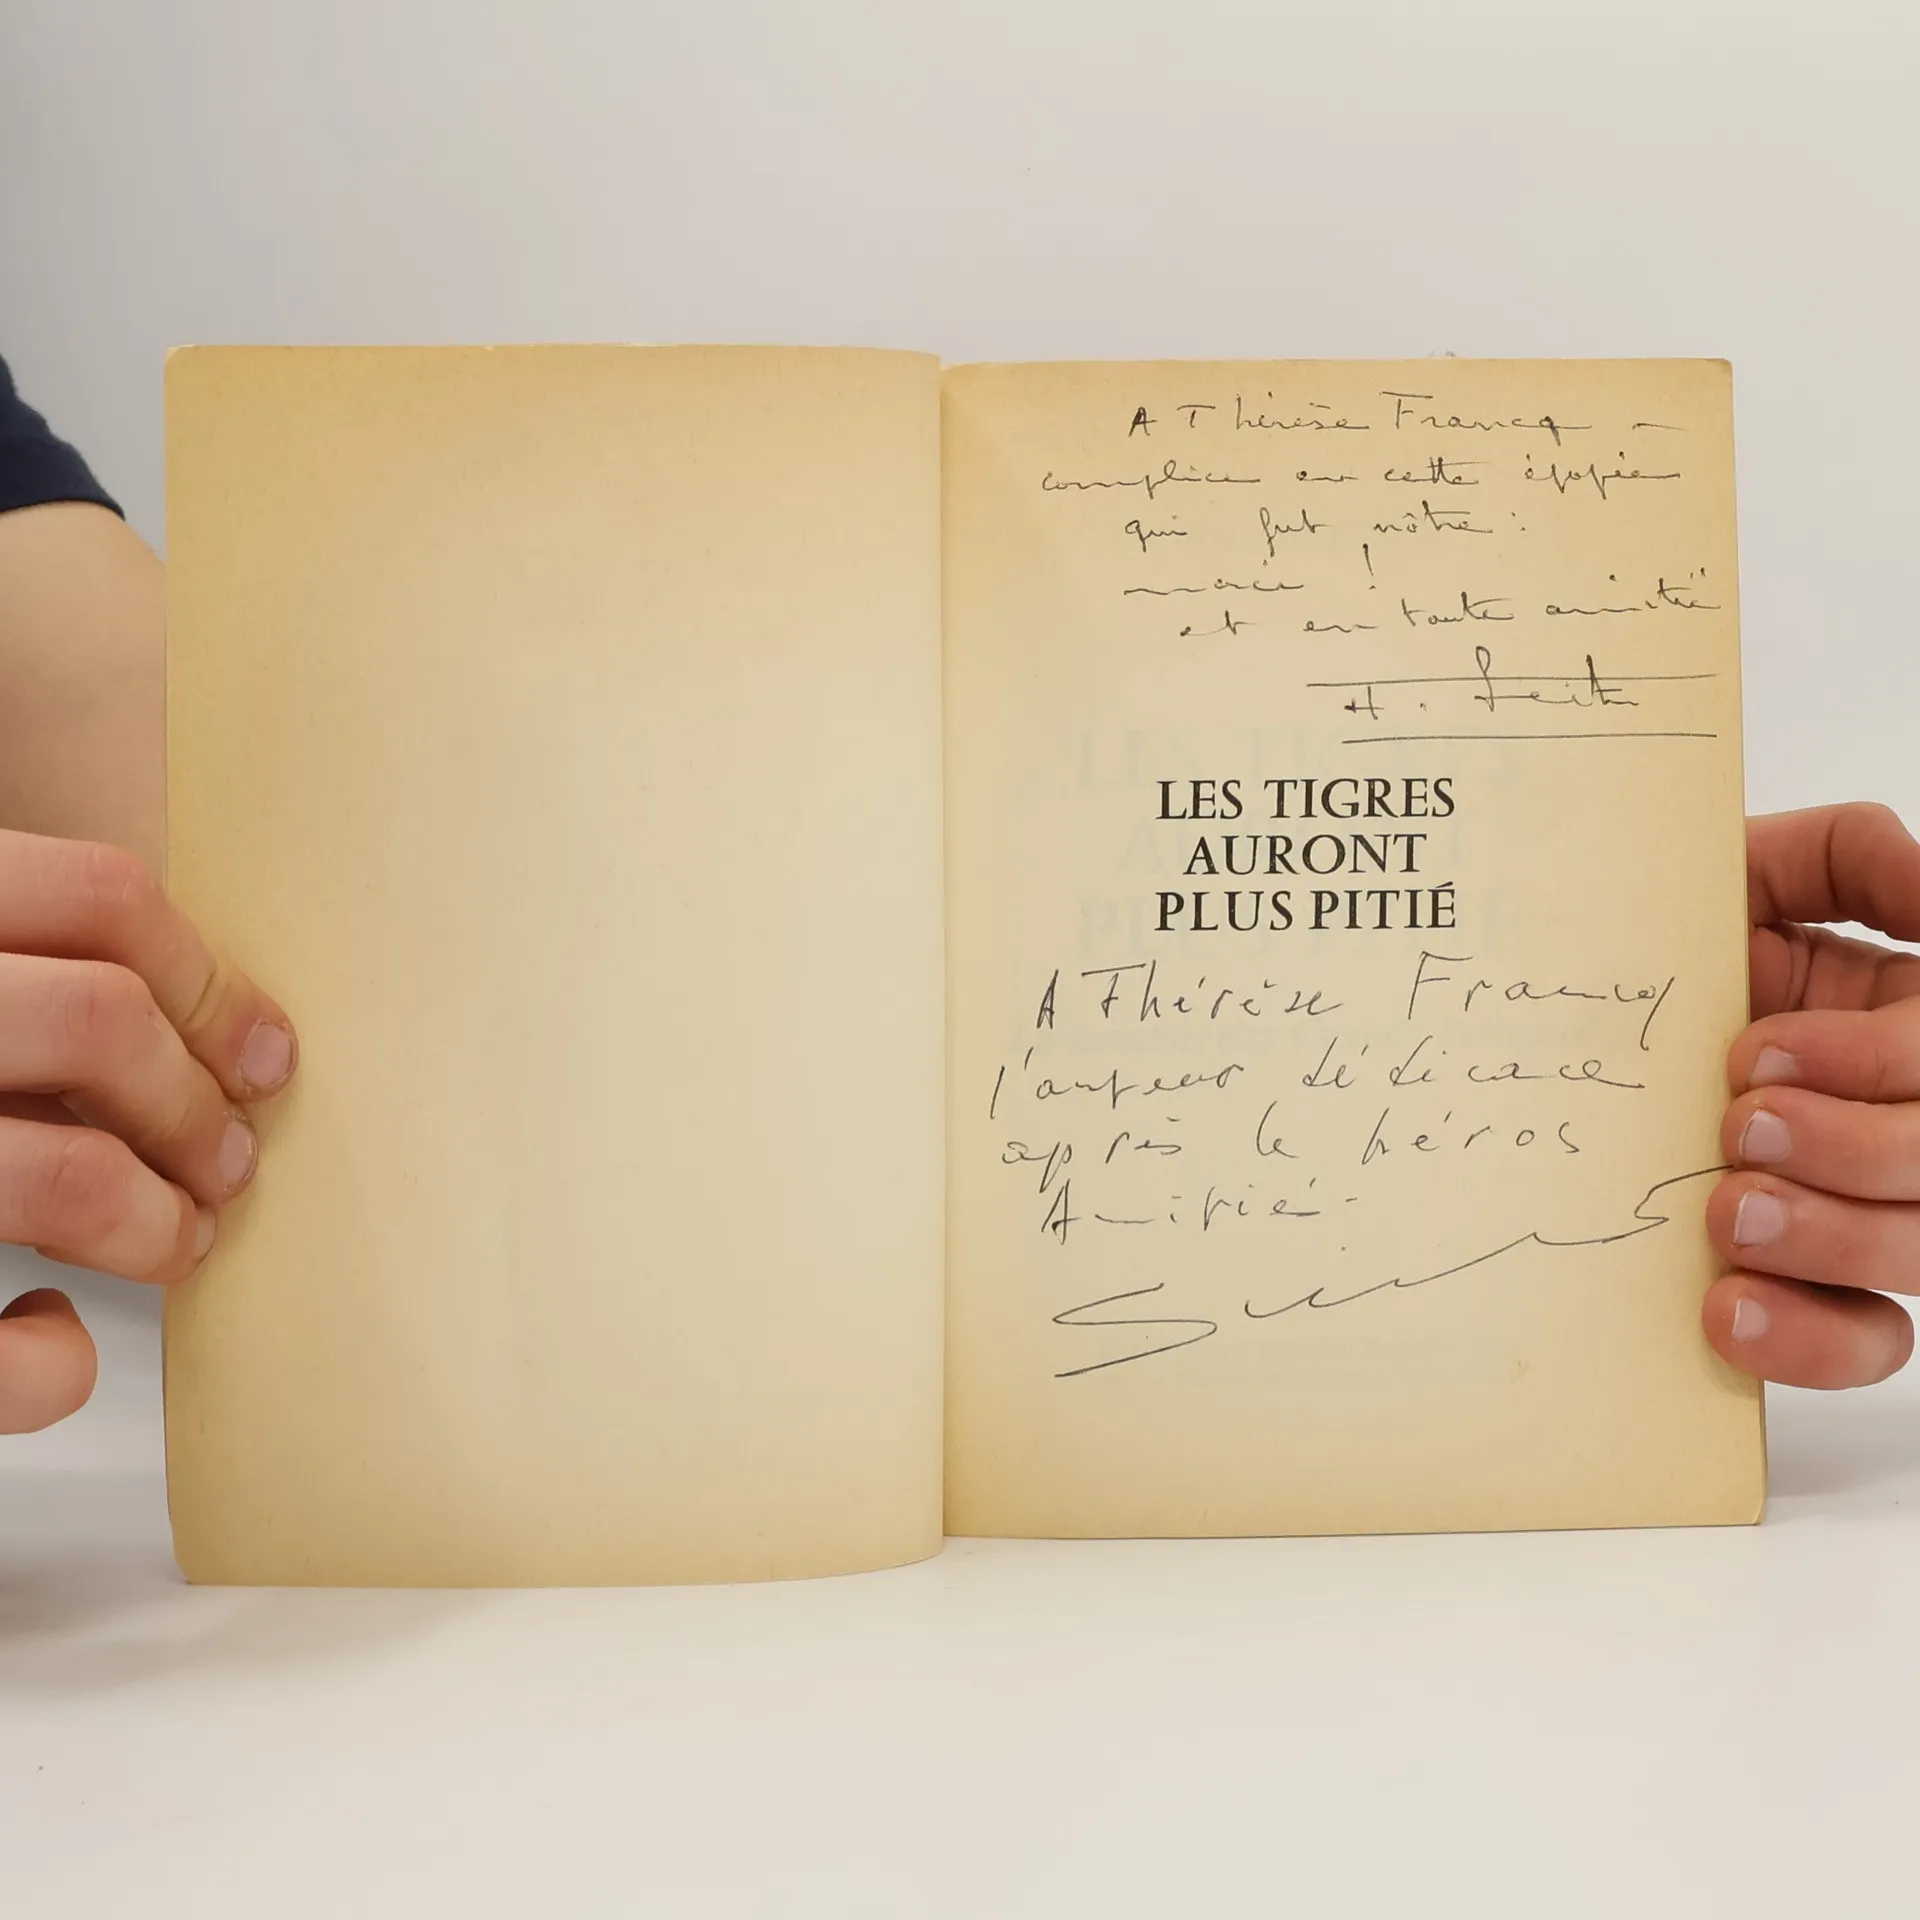 A Thérèse Francq –
complice en cette épopée
qui fut nôtre :
merci !
et en toute amitié
LES TIGRES
AURONT
PLUS PITIÉ
A Thérèse Francq
l'auteur dédicace
après le héros
Amitié.